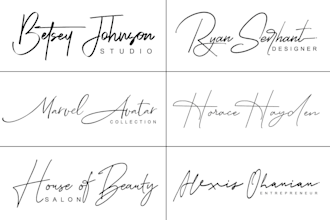 Betsey Johnson
STUDIO
Ryan Serhant
DESIGNER
Marvel Avatar
COLLECTION
Horace Hayden
House of Beauty
SALON
Alexis Ohanian
ENTREPRENEUR